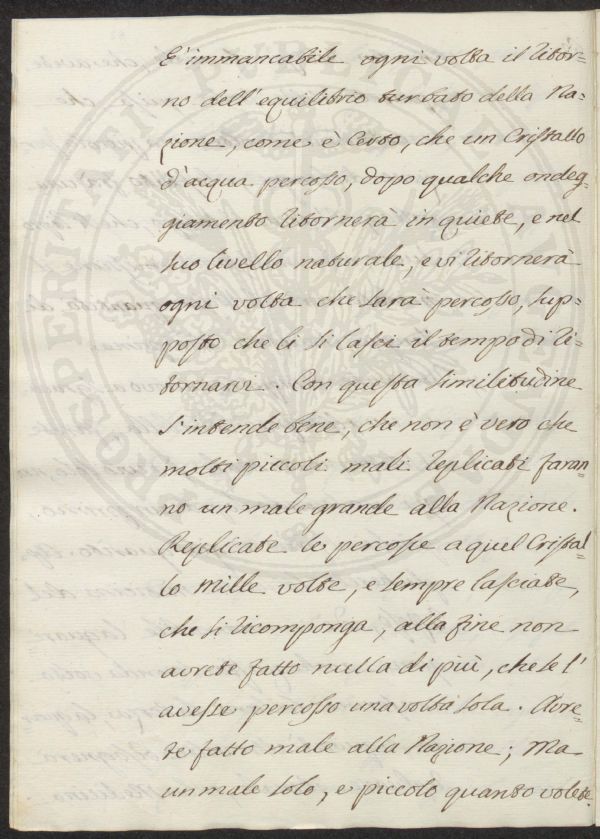 E' immancabile ogni volta il ritor=
no dell'equilibrio turbato della Na=
zione, come è certo, che un Cristallo
d'acqua percosso, dopo qualche ondeg=
giamento ritornerà in quiete, e nel
suo livello naturale, e vi ritornerà
ogni volta che sarà percosso, sup=
posto che li si lasci il tempo di ri=
tornarvi. Con questa similitudine
s'intende bene, che non è vero che
molti piccoli mali replicati faran=
no un male grande alla Nazione.
Replicate le percosse a quel Cristal=
lo mille volte, e sempre lasciate,
che si ricomponga, alla fine non
avrete fatto nulla di più, che se l'
aveste percosso una volta sola. Avre=
te fatto male alla Nazione; Ma
un male solo, e piccolo quanto volete.
PROSPERITATI PUBLICAE